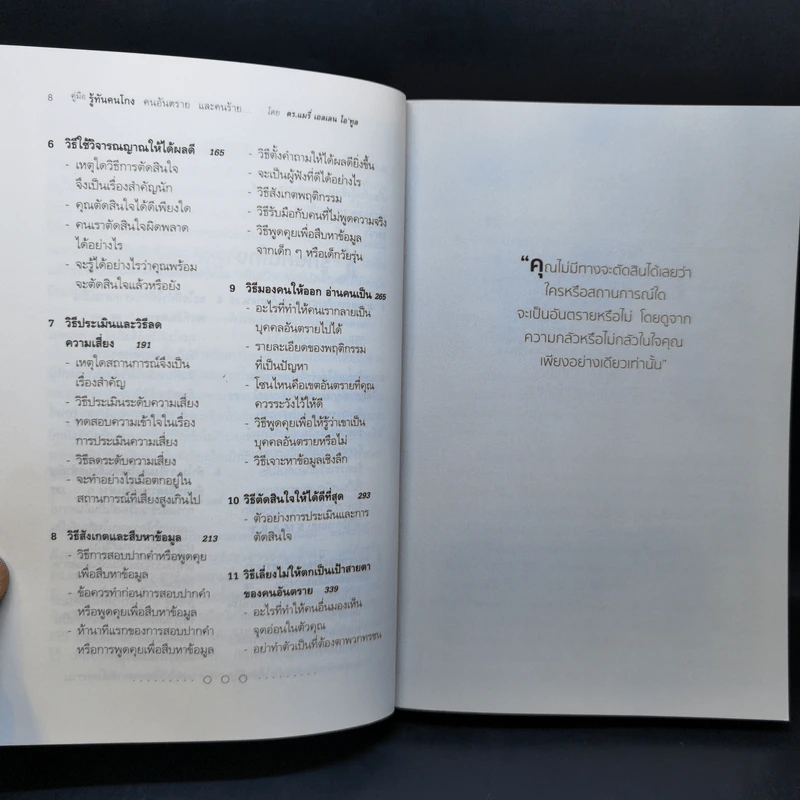 8 คู่มือ รู้ทันคนโกง คนอันตราย และคนร้าย... โดย ดร.แมรี่ เอลเลน โอ'ทูล
6 วิธีใช้วิจารณญาณให้ได้ผลดี 165
- เหตุใดวิธีการตัดสินใจ
จึงเป็นเรื่องสำคัญนัก
- คุณตัดสินใจได้ดีเพียงใด
- คนเราตัดสินใจผิดพลาด
ได้อย่างไร
- จะรู้ได้อย่างไรว่าคุณพร้อม
จะตัดสินใจแล้วหรือยัง
7 วิธีประเมินและวิธีลด
ความเสี่ยง 191
- เหตุใดสถานการณ์จึงเป็น
เรื่องสำคัญ
- วิธีประเมินระดับความเสี่ยง
- ทดสอบความเข้าใจในเรื่อง
การประเมินความเสี่ยง
- วิธีลดระดับความเสี่ยง
- จะทำอย่างไรเมื่อตกอยู่ใน
สถานการณ์ที่เสี่ยงสูงเกินไป
8 วิธีสังเกตและสืบหาข้อมูล 213
- วิธีการสอบปากคำหรือพูดคุย
เพื่อสืบหาข้อมูล
- ข้อควรทำก่อนการสอบปากคำ
หรือพูดคุยเพื่อสืบหาข้อมูล
- ห้านาทีแรกของการสอบปากคำ
หรือการพูดคุยเพื่อสืบหาข้อมูล
- วิธีตั้งคำถามให้ได้ผลดียิ่งขึ้น
- จะเป็นผู้ฟังที่ดีได้อย่างไร
- วิธีสังเกตพฤติกรรม
- วิธีรับมือกับคนที่ไม่พูดความจริง
- วิธีพูดคุยเพื่อสืบหาข้อมูล
จากเด็ก ๆ หรือเด็กวัยรุ่น
9 วิธีมองคนให้ออก อ่านคนเป็น 265
- อะไรที่ทำให้คนเรากลายเป็น
บุคคลอันตรายไปได้
- รายละเอียดของพฤติกรรม
ที่เป็นปัญหา
- โซนไหนคือเขตอันตรายที่คุณ
ควรระวังไว้ให้ดี
- วิธีพูดคุยเพื่อให้รู้ว่าเขาเป็น
บุคคลอันตรายหรือไม่
- วิธีเจาะหาข้อมูลเชิงลึก
10 วิธีตัดสินใจให้ได้ดีที่สุด 293
- ตัวอย่างการประเมินและการ
ตัดสินใจ
11 วิธีเลี่ยงไม่ให้ตกเป็นเป้าสายตา
ของคนอันตราย 339
- อะไรที่ทำให้คนอื่นมองเห็น
จุดอ่อนในตัวคุณ
- อย่าทำตัวเป็นที่ต้องตาพวกทรชน
“คุณไม่มีทางจะตัดสินได้เลยว่า
ใครหรือสถานการณ์ใด
จะเป็นอันตรายหรือไม่ โดยดูจาก
ความกลัวหรือไม่กลัวในใจคุณ
เพียงอย่างเดียวเท่านั้น”